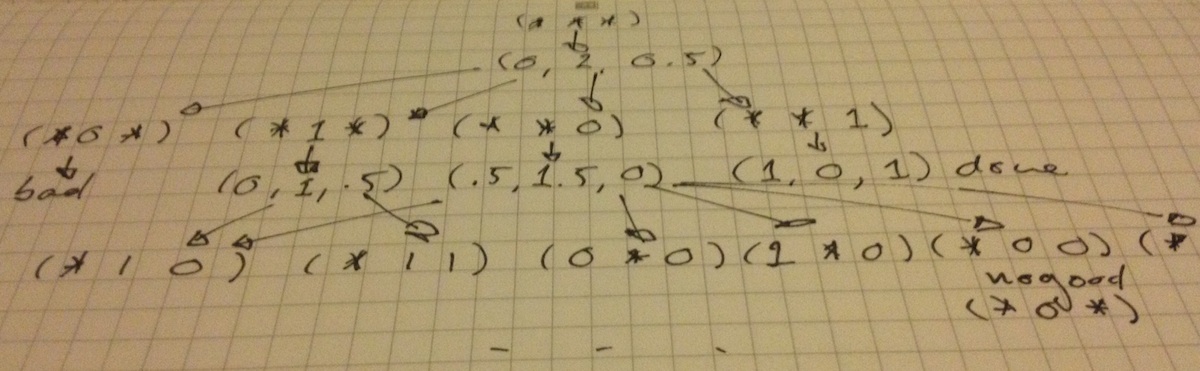 (* * *)
(0, 2, 0.5)
(* 0 *) (* 1 *) (* * 0) (* * 1)
bad (0, 1, .5) (.5, 1.5, 0) (1, 0, 1) done
(* 1 0) (* 1 1) (0 * 0) (1 * 0) (* 0 0) (*
nogood
(* 0 *)
- - -